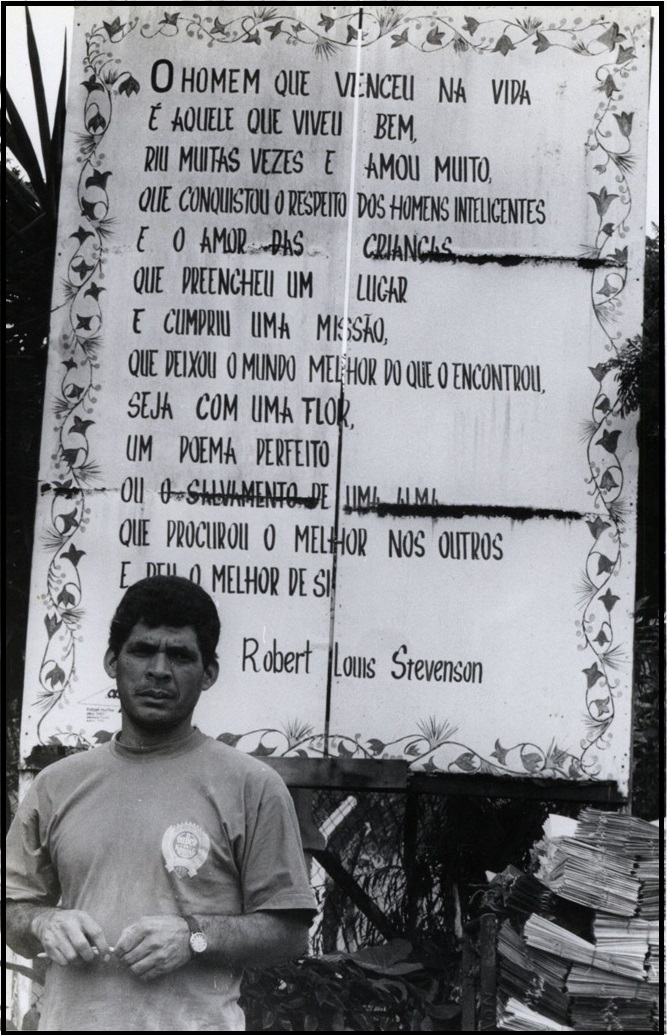 O HOMEM QUE VENCEU NA VIDA
É AQUELE QUE VIVEU BEM,
RIU MUITAS VEZES E AMOU MUITO,
QUE CONQUISTOU O RESPEITO DOS HOMENS INTELIGENTES
E O AMOR DAS CRIANÇAS,
QUE PREENCHEU UM LUGAR
E CUMPRIU UMA MISSÃO,
QUE DEIXOU O MUNDO MELHOR DO QUE O ENCONTROU,
SEJA COM UMA FLOR,
UM POEMA PERFEITO
OU O SALVAMENTO DE UMA ALMA
QUE PROCUROU O MELHOR NOS OUTROS
E DEU O MELHOR DE SI
Robert Louis Stevenson